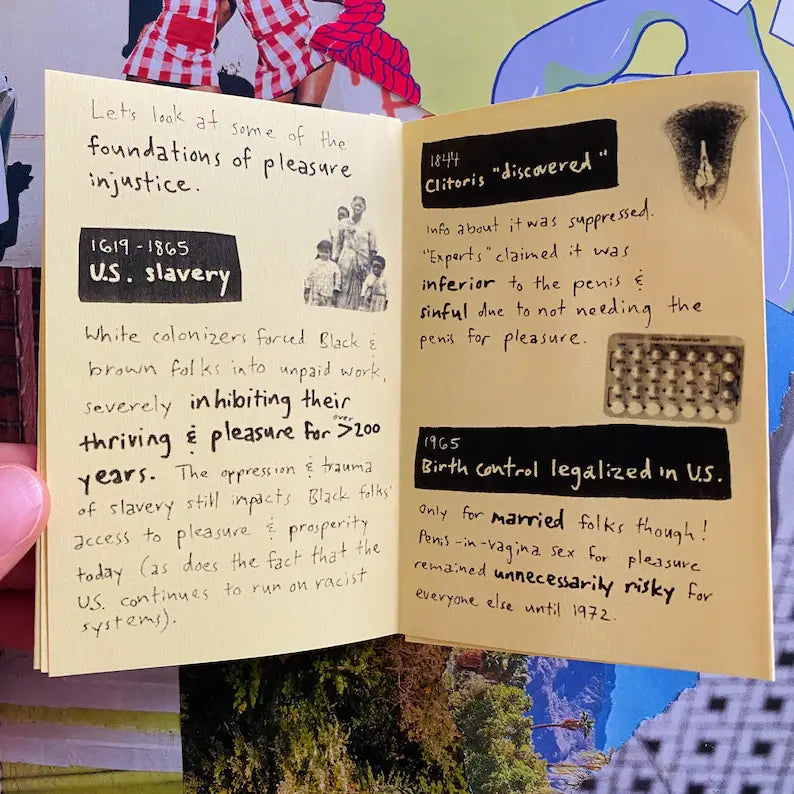 Let's look at some of the
foundations of pleasure
injustice.
1619-1865
U.S. slavery
White colonizers forced Black &
brown folks into unpaid work,
severely inhibiting their
thriving & pleasure for over >200
years. The oppression & trauma
of slavery still impacts Black folks'
access to pleasure & prosperity
today (as does the fact that the
U.S. continues to run on racist
systems).
1844
Clitoris "discovered"
Info about it was suppressed.
"Experts" claimed it was
inferior to the penis &
sinful due to not needing the
penis for pleasure.
1965
Birth control legalized in U.S.
Only for married folks though!
Penis-in-vagina sex for pleasure
remained unnecessarily risky for
everyone else until 1972.